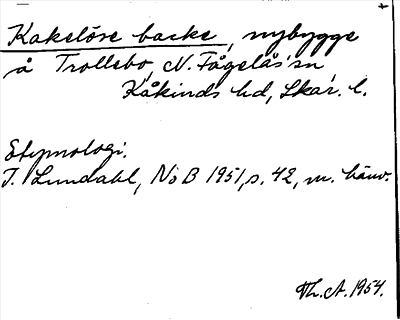 +
Kakelöse backe, nybygge
å Trollebo, N. Fågelås sn
Kåkinds hd, Skar. l.
Etymologi.
I. Lundahl, NoB 1951, s. 42, m. hänv.
Th. A. 1954.